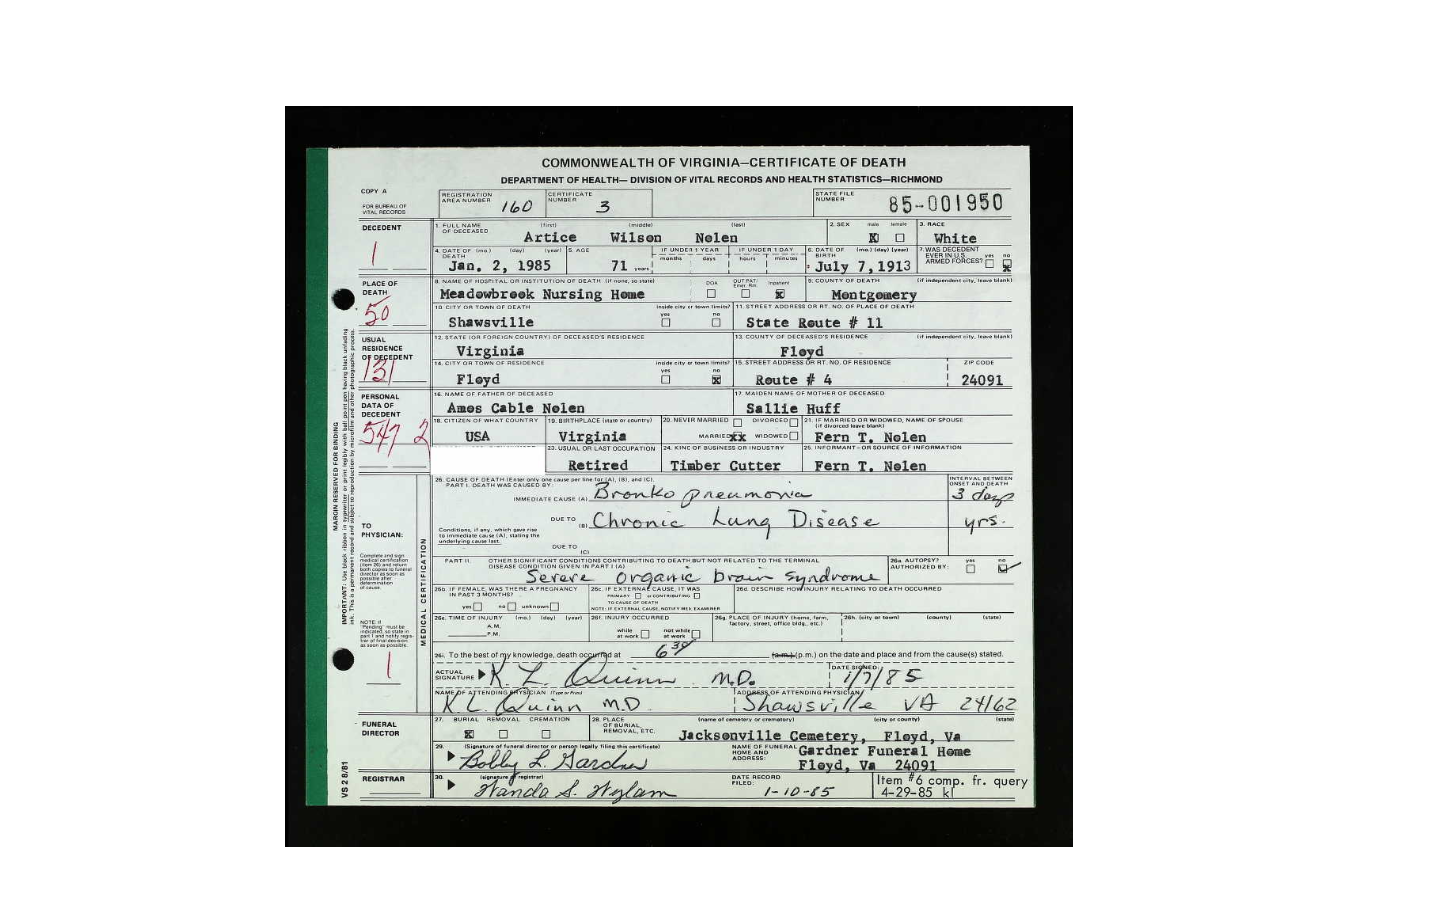 COMMONWEALTH OF VIRGINIA—CERTIFICATE OF DEATH
DEPARTMENT OF HEALTH— DIVISION OF VITAL RECORDS AND HEALTH STATISTICS—RICHMOND
COPY A
FOR BUREAU OF VITAL RECORDS
REGISTRATION AREA NUMBER 160
CERTIFICATE NUMBER 3
STATE FILE NUMBER 85-001950
DECEDENT
1
1. FULL NAME OF DECEASED (first) (middle) (last)
Artice Wilson Nolen
2. SEX male female X
3. RACE White
4. DATE OF DEATH (mo.) (day) (year)
Jan. 2, 1985
5. AGE 71 years
IF UNDER 1 YEAR months days
IF UNDER 1 DAY hours minutes
6. DATE OF BIRTH (mo.) (day) (year)
July 7, 1913
7. WAS DECEDENT EVER IN U.S. ARMED FORCES? yes no X
PLACE OF DEATH
50
8. NAME OF HOSPITAL OR INSTITUTION OF DEATH (if none, so state)
Meadowbrook Nursing Home
DOA OUT PAT/ Emer. Rm. Inpatient X
9. COUNTY OF DEATH (if independent city, leave blank)
Montgomery
10. CITY OR TOWN OF DEATH inside city or town limits? yes no
Shawsville
11. STREET ADDRESS OR RT. NO. OF PLACE OF DEATH
State Route # 11
USUAL RESIDENCE OF DECEDENT
131
12. STATE (OR FOREIGN COUNTRY) OF DECEASED'S RESIDENCE
Virginia
13. COUNTY OF DECEASED'S RESIDENCE (if independent city, leave blank)
Floyd
14. CITY OR TOWN OF RESIDENCE inside city or town limits? yes no X
Floyd
15. STREET ADDRESS OR RT. NO. OF RESIDENCE ZIP CODE
Route # 4 24091
PERSONAL DATA OF DECEDENT
547 2
16. NAME OF FATHER OF DECEASED
Amos Cable Nolen
17. MAIDEN NAME OF MOTHER OF DECEASED
Sallie Huff
18. CITIZEN OF WHAT COUNTRY
USA
19. BIRTHPLACE (state or country)
Virginia
20. NEVER MARRIED DIVORCED
MARRIED xx WIDOWED
21. IF MARRIED OR WIDOWED, NAME OF SPOUSE (if divorced leave blank)
Fern T. Nolen
23. USUAL OR LAST OCCUPATION
Retired
24. KIND OF BUSINESS OR INDUSTRY
Timber Cutter
25. INFORMANT - OR SOURCE OF INFORMATION
Fern T. Nolen
MARGIN RESERVED FOR BINDING
MEDICAL CERTIFICATION
TO PHYSICIAN:
Complete and sign medical certification (item 26) and return both copies to funeral director as soon as possible after determination of cause.
NOTE: If "Pending" must be indicated, so state in part I and notify registrar of final decision as soon as possible.
1
26. CAUSE OF DEATH (Enter only one cause per line for (A), (B), and (C).
PART I. DEATH WAS CAUSED BY:
INTERVAL BETWEEN ONSET AND DEATH
IMMEDIATE CAUSE (A) Bronko pneumonia 3 days
DUE TO (B) Chronic Lung Disease yrs.
Conditions, if any, which gave rise to immediate cause (A), stating the underlying cause last.
DUE TO (C)
PART II. OTHER SIGNIFICANT CONDITIONS CONTRIBUTING TO DEATH BUT NOT RELATED TO THE TERMINAL DISEASE CONDITION GIVEN IN PART I (A)
Severe organic brain syndrome
26a. AUTOPSY? AUTHORIZED BY: yes no
26b. IF FEMALE, WAS THERE A PREGNANCY IN PAST 3 MONTHS?
yes no unknown
26c. IF EXTERNAL CAUSE, IT WAS
PRIMARY or CONTRIBUTING
TO CAUSE OF DEATH
NOTE: IF EXTERNAL CAUSE, NOTIFY MED. EXAMINER
26d. DESCRIBE HOW INJURY RELATING TO DEATH OCCURRED
26e. TIME OF INJURY (mo.) (day) (year)
A.M.
P.M.
26f. INJURY OCCURRED
while at work not while at work
26g. PLACE OF INJURY (home, farm, factory, street, office bldg., etc.)
26h. (city or town) (county) (state)
26i. To the best of my knowledge, death occurred at 6 30 (a.m.) (p.m.) on the date and place and from the cause(s) stated.
ACTUAL SIGNATURE K. L. Quinn M.D.
DATE SIGNED: 1/7/85
NAME OF ATTENDING PHYSICIAN (Type or Print)
K.L. Quinn M.D.
ADDRESS OF ATTENDING PHYSICIAN
Shawsville VA 24162
FUNERAL DIRECTOR
27. BURIAL REMOVAL CREMATION
X
28. PLACE OF BURIAL, REMOVAL, ETC. (name of cemetery or crematory) (city or county) (state)
Jacksonville Cemetery, Floyd, Va
29. (Signature of funeral director or person legally filing this certificate)
Bobby L. Gardner
NAME OF FUNERAL HOME AND ADDRESS:
Gardner Funeral Home
Floyd, Va 24091
REGISTRAR
30. (signature of registrar)
Wanda S. Wylam
DATE RECORD FILED:
1-10-85
Item #6 comp. fr. query
4-29-85 kl
VS 2 8/81